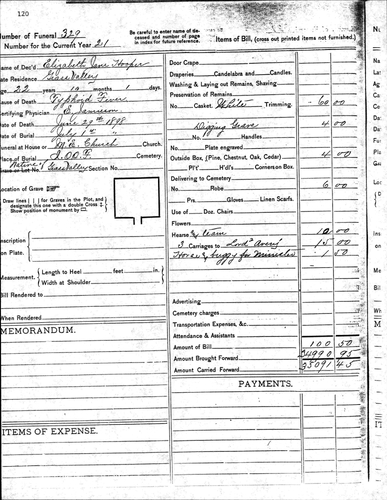 120
Number of Funeral 329
Number for the Current Year 211
Be careful to enter name of deceased and number of page in index for future reference.
Name of Dec'd Elizabeth Jane Hooper
Late Residence Grass Valley
Age 22 years 10 months 1 days.
Cause of Death Typhoid Fever
Certifying Physician Jamison
Date of Death June 29th 1898
Date of Burial July 1st "
Funeral at House or M. E. Church Church.
Place of Burial I.O.O.F. Cemetery.
Native
Grave or Lot No. Grass Valley Section No.
Location of Grave
Draw lines for Graves in the Plot, and designate this one with a double Cross
Show position of monument by
Inscription
on Plate.
Measurement. Length to Heel feet in.
Width at Shoulder
Bill Rendered to
When Rendered
MEMORANDUM.
ITEMS OF EXPENSE.
Items of Bill, (cross out printed items not furnished.)
Door Crape
Draperies Candelabra and Candles.
Washing & Laying out Remains, Sharing
Preservation of Remains
No. Casket. White Trimming. 60 00
No.
Digging Grave 4 00
No. Handles
No. Plate engraved
Outside Box, (Pine, Chestnut, Oak, Cedar) 4 00
No. Pl't' H'd'l's Corners on Box.
Delivering to Cemetery
No. Robe 6 00
Prs. Gloves Linen Scarfs.
Use of Doz. Chairs
Flowers
Hearse & team 10 00
3 Carriages to Lord & Avery 15 00
Horse & buggy for Minister 1 50
Advertising
Cemetery charges
Transportation Expenses, &c.
Attendance & Assistants
Amount of Bill 100 50
Amount Brought Forward 34990 95
Amount Carried Forward 35091 45
PAYMENTS.